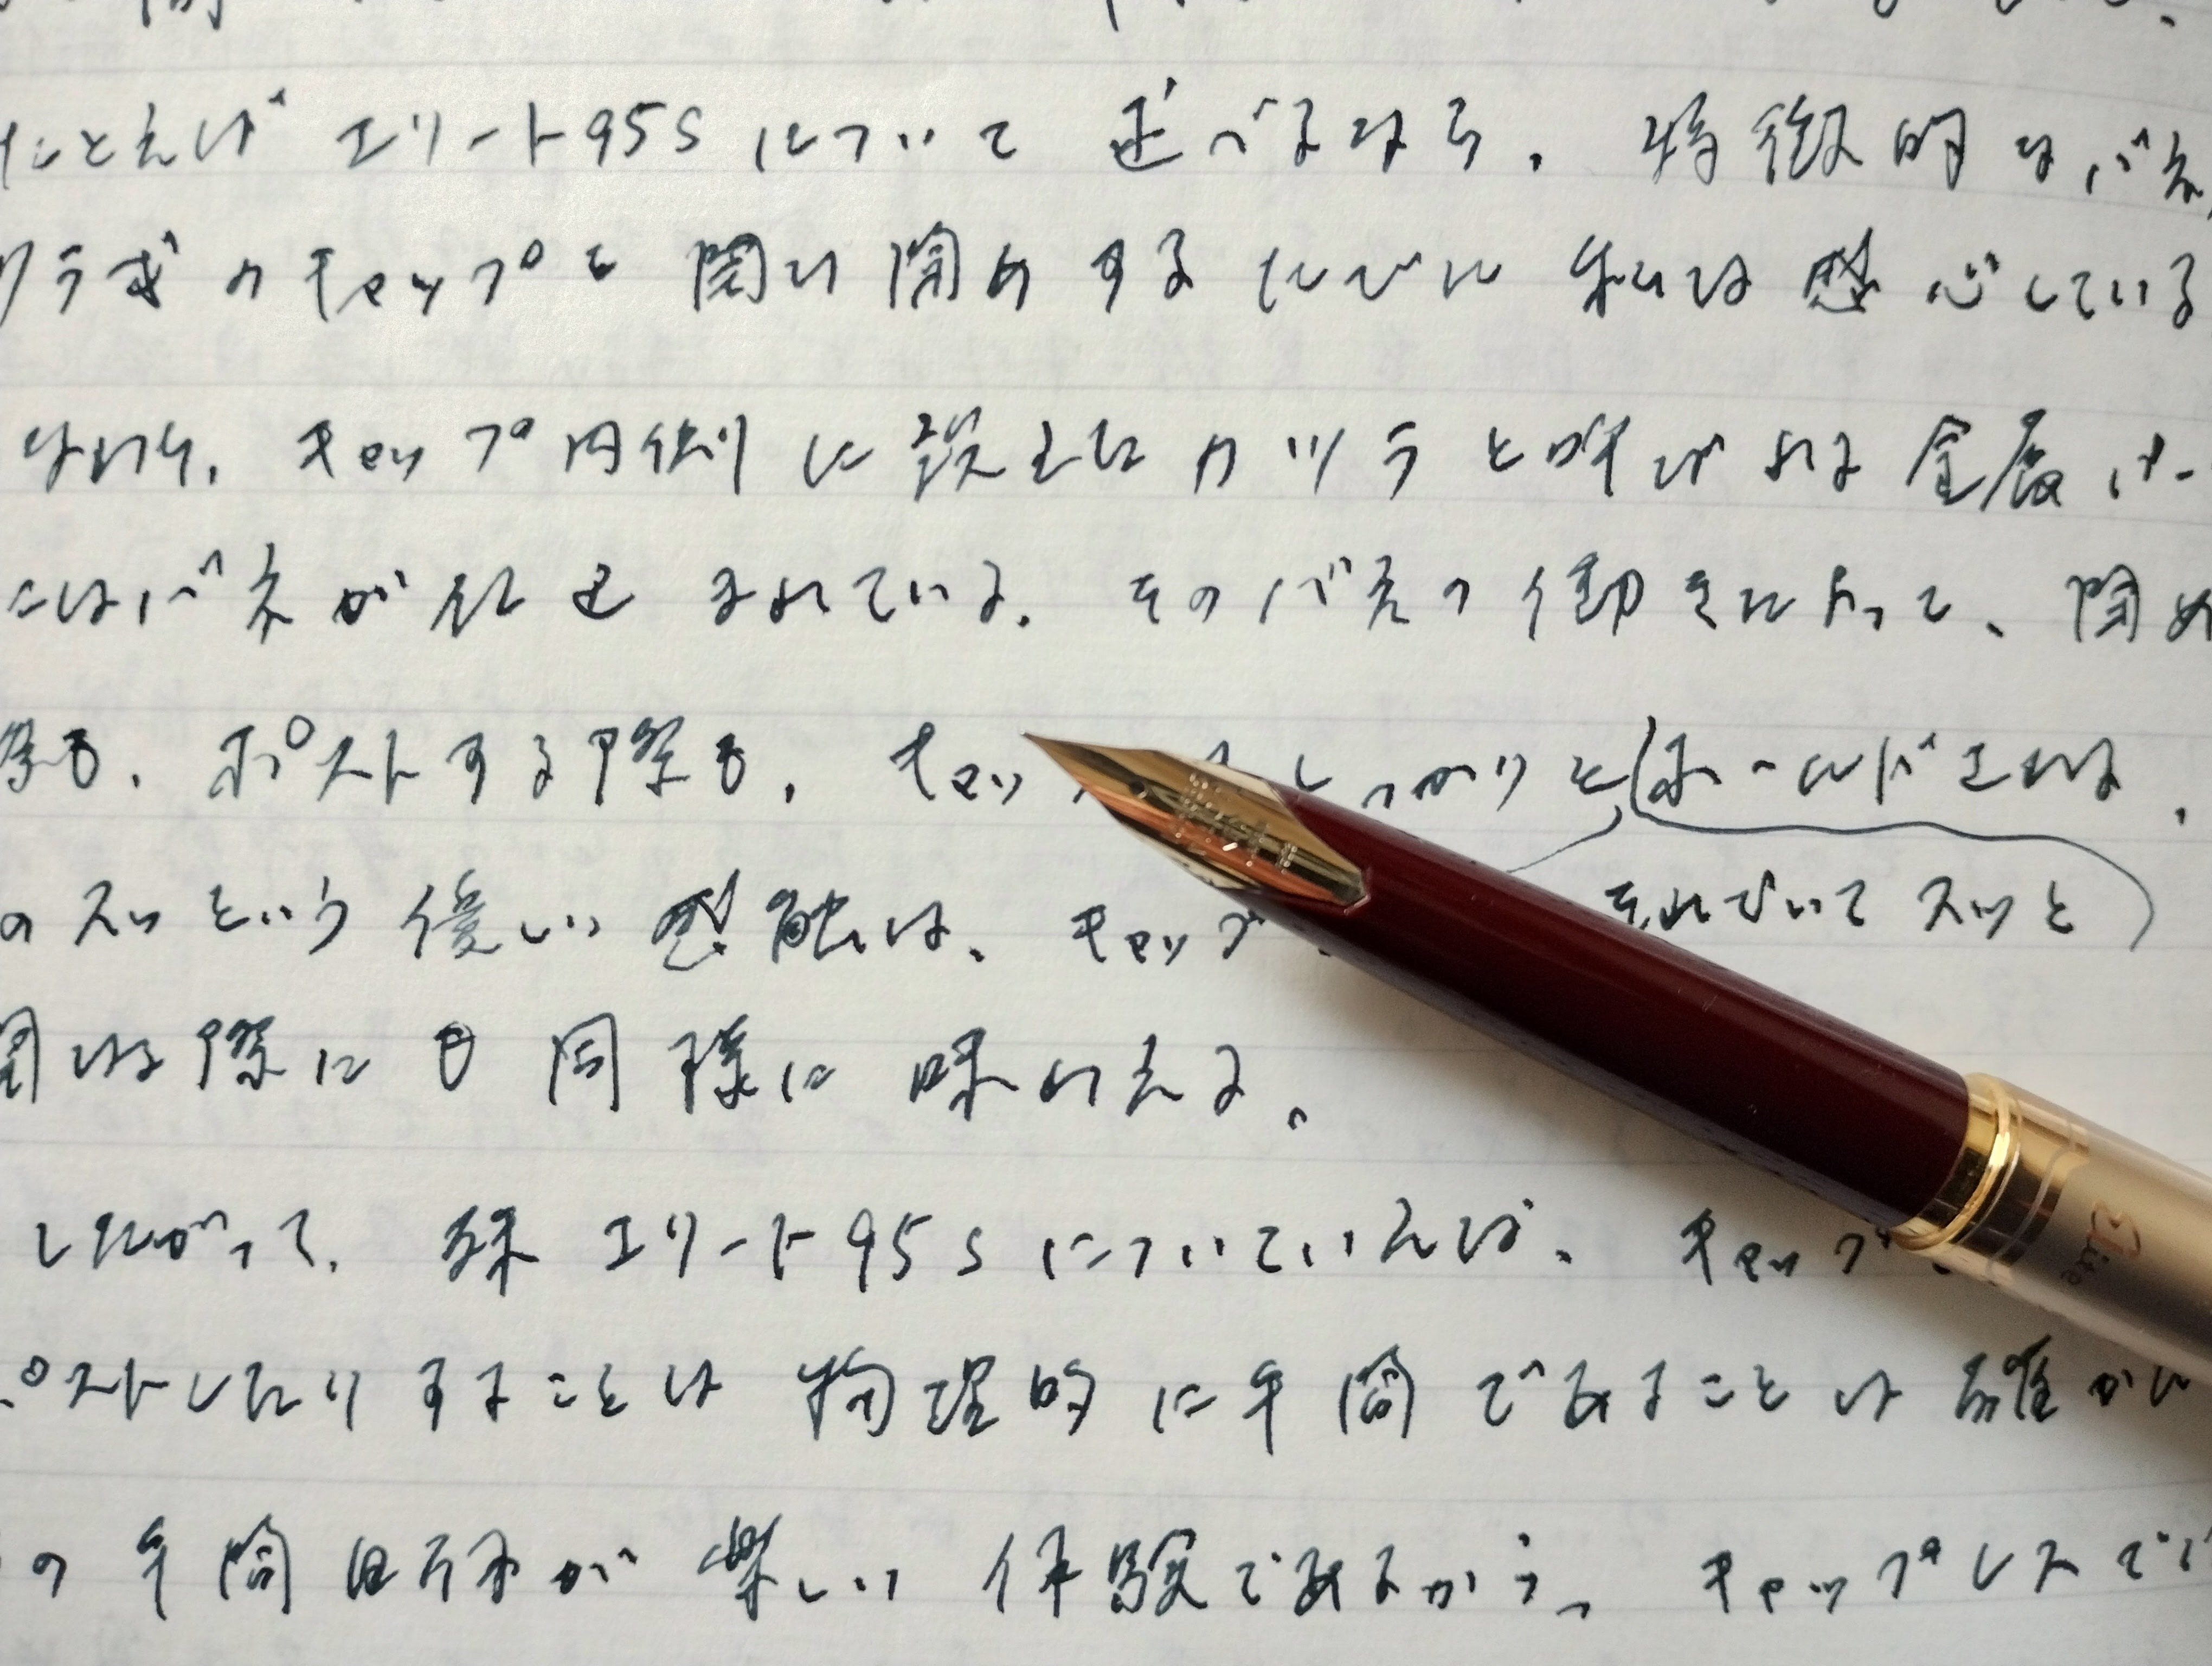 たとえばエリート95Sについて述べるなら、特徴的なバネ
カツラ式のキャップを開け閉めするたびに私は感心している
なぜなら、キャップ内側に設えたカツラと呼ばれる金属パー
にはバネが仕込まれている。そのバネの働きによって、閉め
際も、ポストする際も、キャッ しっかりとホールドされる、
のスッという優しい感触は、キャップ
それでいてスッと
開ける際にも同様に味わえる。
したがって、殊エリート95Sについていえば、キャップ
ポストしたりすることは物理的に手間であることは確かに
の手間自体が楽しい体験であるから、キャップレスでは
Elite